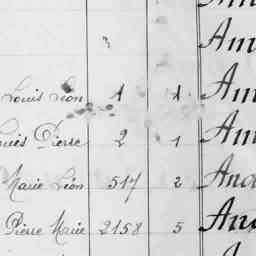 Am
Am
Louis Léon 1 1 Am
Louis Pierre 2 1 Am
Marie Léon 517 2 And
Pierre Marie 2158 5 And